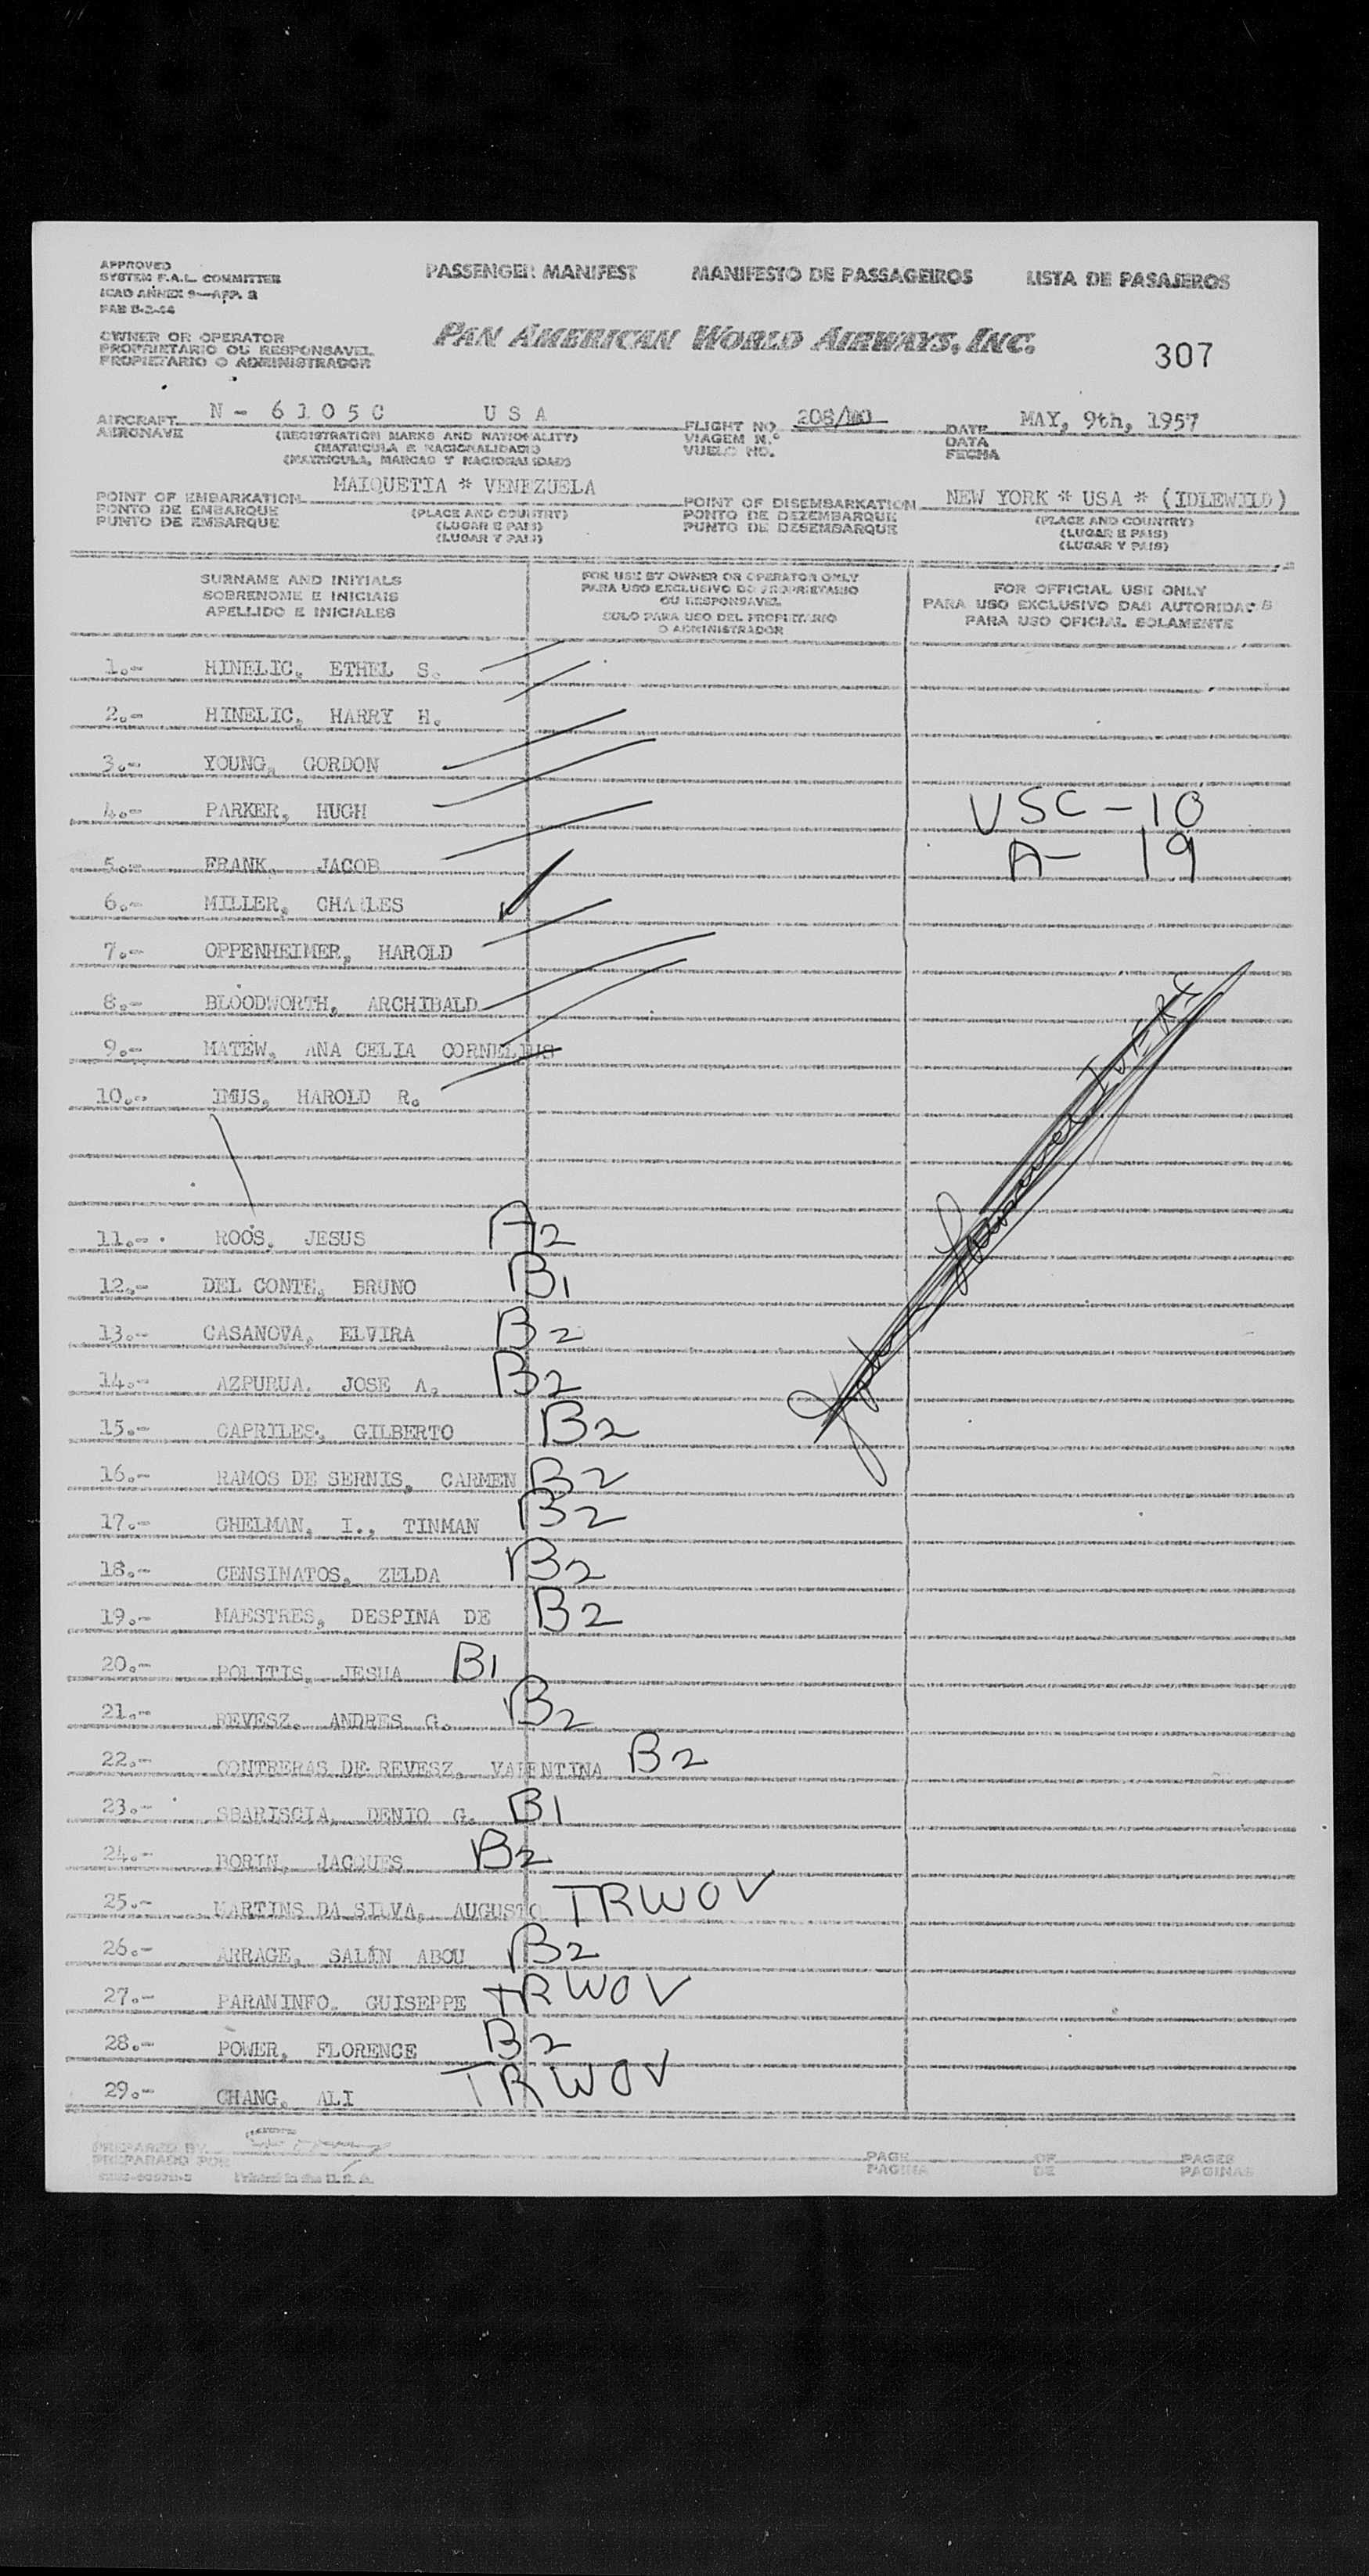 APPROVED
SYSTEM F.A.L. COMMITTEE
ICAO ANNEX 9—APP. 2
PASSENGER MANIFEST MANIFESTO DE PASSAGEIROS LISTA DE PASAJEROS
OWNER OR OPERATOR
PROPRIETARIO OU RESPONSAVEL
PROPIETARIO O ADMINISTRADOR
PAN AMERICAN WORLD AIRWAYS, INC.
307
AIRCRAFT N - 6 1 0 5 C U S A FLIGHT NO. DATE MAY, 9th, 1957
AERONAVE (REGISTRATION MARKS AND NATIONALITY) VIAGEM N.º DATA
(MATRICULA E NACIONALIDADE) VUELO NO. FECHA
(MATRICULA, MARCAS Y NACIONALIDAD)
POINT OF EMBARKATION MAIQUETIA * VENEZUELA POINT OF DISEMBARKATION NEW YORK * USA * (IDLEWILD)
PONTO DE EMBARQUE (PLACE AND COUNTRY) PONTO DE DEZEMBARQUE (PLACE AND COUNTRY)
PUNTO DE EMBARQUE (LUGAR E PAIS) PUNTO DE DESEMBARQUE (LUGAR E PAIS)
(LUGAR Y PAIS) (LUGAR Y PAIS)
SURNAME AND INITIALS FOR USE BY OWNER OR OPERATOR ONLY FOR OFFICIAL USE ONLY
SOBRENOME E INICIAIS PARA USO EXCLUSIVO DO PROPRIETARIO PARA USO EXCLUSIVO DAS AUTORIDADES
OU RESPONSAVEL
APELLIDO E INICIALES SOLO PARA USO DEL PROPIETARIO PARA USO OFICIAL SOLAMENTE
O ADMINISTRADOR
1.- HINELIC, ETHEL S.
2.- HINELIC, HARRY H.
3.- YOUNG, GORDON
4.- PARKER, HUGH USC-10
5.- FRANK, JACOB A- 19
6.- MILLER, CHARLES
7.- OPPENHEIMER, HAROLD
8.- BLOODWORTH, ARCHIBALD
9.- MATEW, ANA CELIA CORNELIUS
10.- IMUS, HAROLD R.
11.- ROOS, JESUS A2
12.- DEL CONTE, BRUNO B1
13.- CASANOVA, ELVIRA B2
14.- AZPURUA, JOSE A. B2
15.- CAPRILES, GILBERTO B2
16.- RAMOS DE SERNIS, CARMEN B2
17.- GHELMAN, I., TINMAN B2
18.- CENSINATOS, ZELDA B2
19.- MAESTRES, DESPINA DE B2
20.- POLITIS, JESUA B1
21.- REVESZ, ANDRES G. B2
22.- CONTRERAS DE REVESZ, VALENTINA B2
23.- SBARISCIA, DENIO G. B1
24.- BORIN, JACQUES B2
25.- MARTINS DA SILVA, AUGUSTO TRWOV
26.- ARRAGE, SALIN ABOU B2
27.- PARANINFO, GUISEPPE TRWOV
28.- POWER, FLORENCE B2
29.- CHANG, ALI TRWOV
PREPARED BY PAGE OF PAGES
PREPARADO POR PAGINA DE PAGINAS
Printed in the U. S. A.